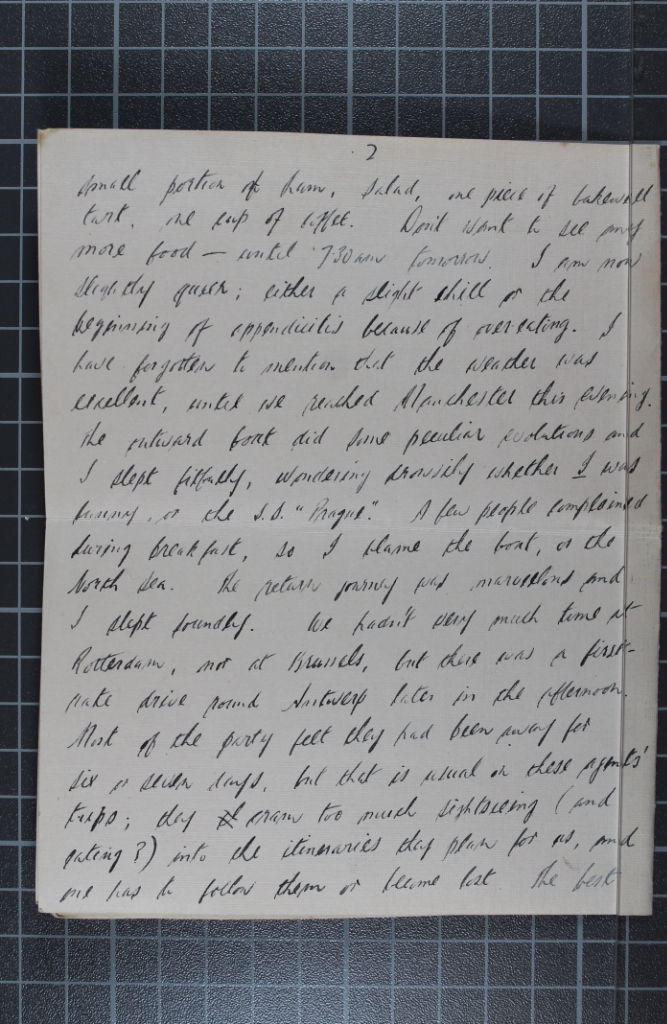 2
small portion of ham, salad, one piece of bakewell
tart, one cup of coffee. Don't want to see any
more food — until 7.30am tomorrow. I am now
slightly queer; either a slight chill or the
beginning of appendicitis because of over-eating. I
have forgotten to mention that the weather was
excellent, until we reached Manchester this evening.
The outward boat did some peculiar evolutions and
I slept fitfully, wondering drowsily whether I was
funny, or the S.S. "Prague". A few people complained
during breakfast, so I blame the boat, or the
North Sea. The return journey was marvellous and
I slept soundly. We hadn't very much time at
Rotterdam, nor at Brussels, but there was a first-
rate drive round Antwerp later in the afternoon.
Most of the party felt they had been away for
six or seven days, but that is usual on these agents'
trips; they cram too much sightseeing (and
eating?) into the itineraries they plan for us, and
one has to follow them or become lost. The best